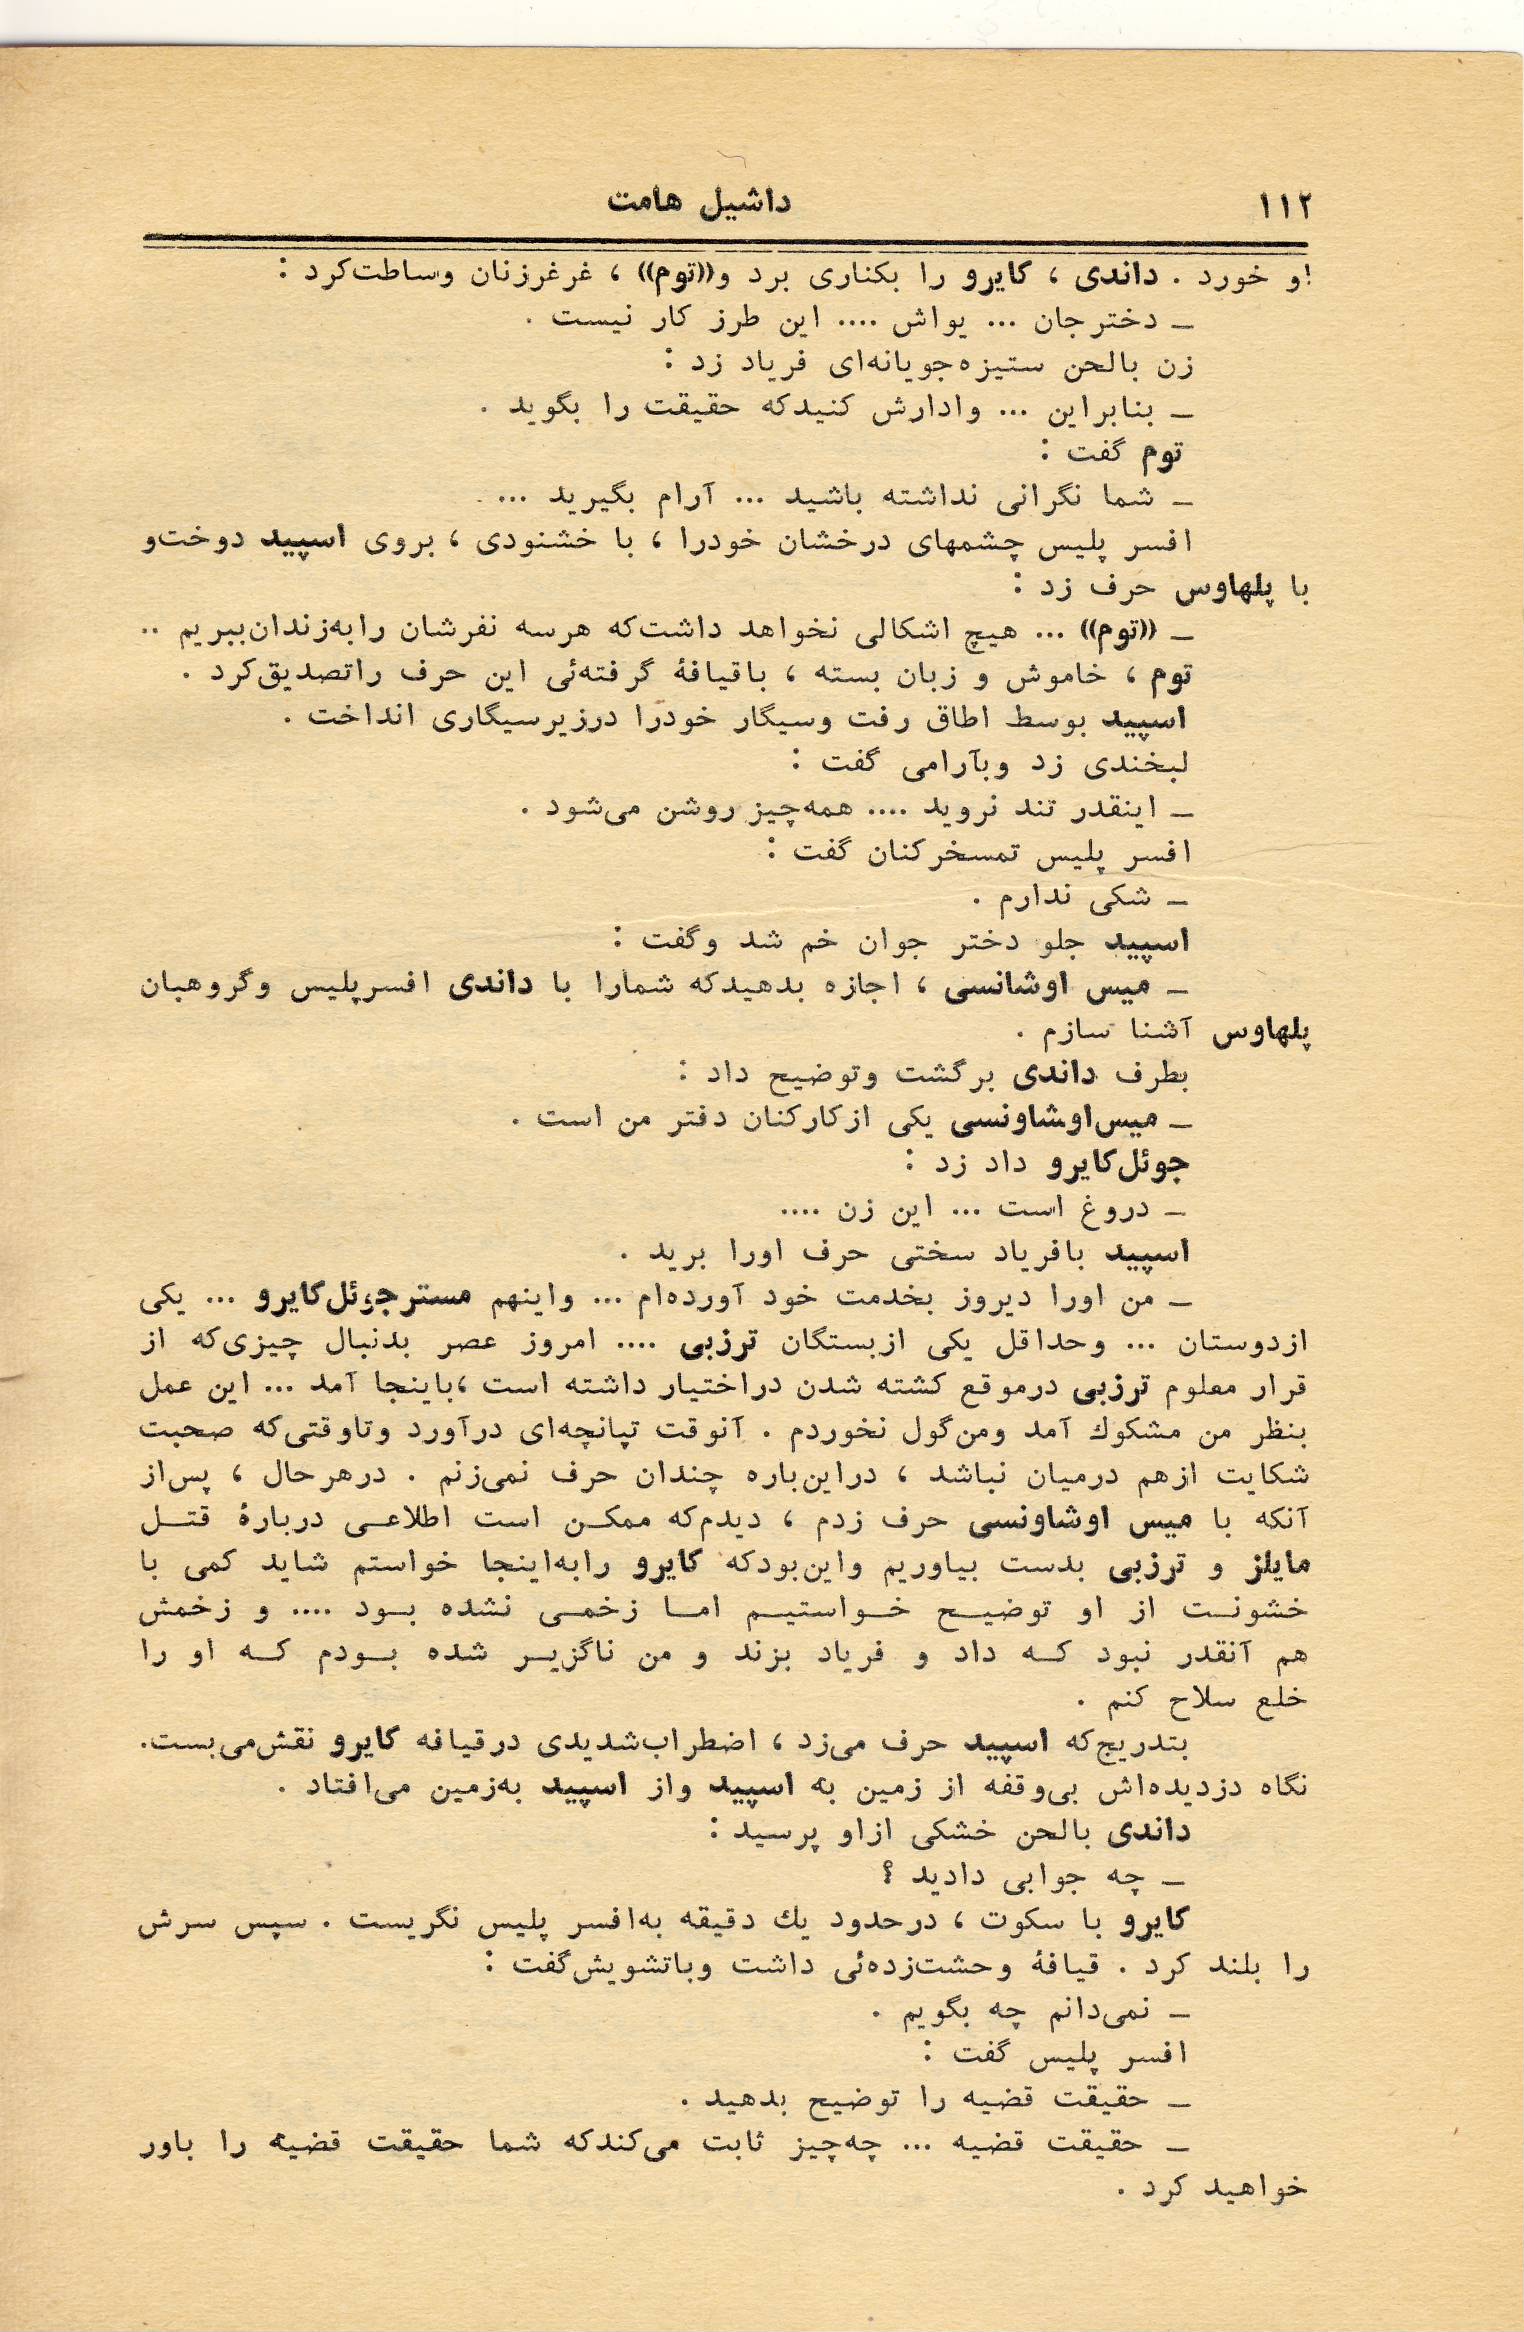 ۱۱۲ داشیل هامت
او خورد . داندی ، کایرو را بکناری برد و((توم)) ، غرغرزنان وساطت‌کرد :
ـ دخترجان ... یواش .... این طرز کار نیست .
زن بالحن ستیزه‌جویانه‌ای فریاد زد :
ـ بنابراین ... وادارش کنیدکه حقیقت را بگوید .
توم گفت :
ـ شما نگرانی نداشته باشید ... آرام بگیرید ...
افسر پلیس چشمهای درخشان خودرا ، با خشنودی ، بروی اسپید دوخت‌و
با پلهاوس حرف زد :
ـ ((توم)) ... هیچ اشکالی نخواهد داشت‌که هرسه نفرشان رابه‌زندان‌ببریم ..
توم ، خاموش و زبان بسته ، باقیافهٔ گرفته‌ئی این حرف راتصدیق‌کرد .
اسپید بوسط اطاق رفت وسیگار خودرا درزیرسیگاری انداخت .
لبخندی زد وبآرامی گفت :
ـ اینقدر تند نروید .... همه‌چیز روشن می‌شود .
افسر پلیس تمسخرکنان گفت :
ـ شکی ندارم .
اسپید جلو دختر جوان خم شد وگفت :
ـ میس اوشانسی ، اجازه بدهیدکه شمارا با داندی افسرپلیس وگروهبان
پلهاوس آشنا سازم .
بطرف داندی برگشت وتوضیح داد :
ـ میس‌اوشاونسی یکی ازکارکنان دفتر من است .
جوئل‌کایرو داد زد :
ـ دروغ است ... این زن ....
اسپید بافریاد سختی حرف اورا برید .
ـ من اورا دیروز بخدمت خود آورده‌ام ... واینهم مسترجوئل‌کایرو ... یکی
ازدوستان ... وحداقل یکی ازبستگان ترزبی .... امروز عصر بدنبال چیزی‌که از
قرار معلوم ترزبی درموقع کشته شدن دراختیار داشته است ،باینجا آمد ... این عمل
بنظر من مشکوك آمد ومن‌گول نخوردم . آنوقت تپانچه‌ای درآورد وتاوقتی‌که صحبت
شکایت ازهم درمیان نباشد ، دراین‌باره چندان حرف نمی‌زنم . درهرحال ، پس‌از
آنکه با میس اوشاونسی حرف زدم ، دیدم‌که ممکن است اطلاعی دربارهٔ قتل
مایلز و ترزبی بدست بیاوریم واین‌بودکه کایرو رابه‌اینجا خواستم شاید کمی با
خشونت از او توضیح خواستیم اما زخمی نشده بود .... و زخمش
هم آنقدر نبود که داد و فریاد بزند و من ناگزیر شده بودم که او را
خلع سلاح کنم .
بتدریج‌که اسپید حرف می‌زد ، اضطراب‌شدیدی درقیافه کایرو نقش‌می‌بست.
نگاه دزدیده‌اش بی‌وقفه از زمین به اسپید واز اسپید به‌زمین می‌افتاد .
داندی بالحن خشکی ازاو پرسید :
ـ چه جوابی دادید ؟
کایرو با سکوت ، درحدود یك دقیقه به‌افسر پلیس نگریست . سپس سرش
را بلند کرد . قیافهٔ وحشت‌زده‌ئی داشت وباتشویش‌گفت :
ـ نمی‌دانم چه بگویم .
افسر پلیس گفت :
ـ حقیقت قضیه را توضیح بدهید .
ـ حقیقت قضیه ... چه‌چیز ثابت می‌کندکه شما حقیقت قضیه را باور
خواهید کرد .